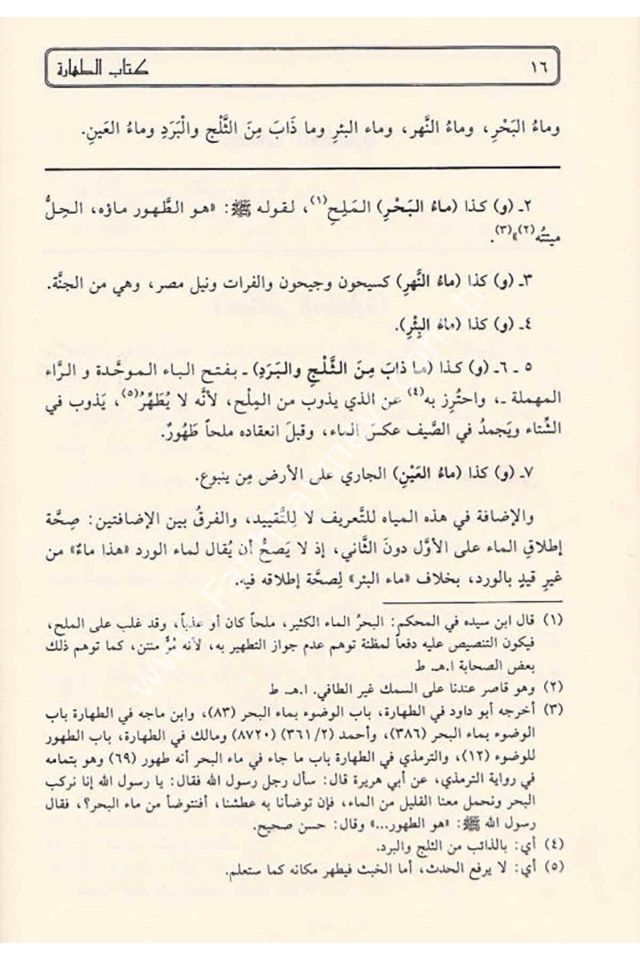 ١٦ كتاب الطهارة
وماءُ البَحْرِ، وماءُ النَّهرِ، وماء البئرِ وما ذَابَ مِنَ الثَّلْجِ والْبَرَدِ وماءُ العَينِ.
٢ـ (و) كذا (ماءُ البَحْرِ) المَلِحِ(١)، لقوله ﷺ: «هو الطَّهور ماؤه، الحِلُّ
ميتتُه(٢)»(٣).
٣ـ (و) كذا (ماءُ النَّهرِ) كسيحون وجيحون والفرات ونيل مصر، وهي من الجنَّة.
٤ـ (و) كذا (ماءُ البِئْرِ).
٥ ـ ٦ـ (و) كذا (ما ذابَ مِنَ الثَّلْجِ والبَرَدِ) ـ بفتح الباء الموحَّدة و الرَّاء
المهملة ـ، واحتُرِز به(٤) عن الذي يذوب من المِلْح، لأنَّه لا يُطَهِّرُ(٥)، يَذوب في
الشِّتاء ويَجمدُ في الصَّيف عكسَ الماء، وقبلَ انعقاده ملحاً طَهُورٌ.
٧ـ (و) كذا (ماءُ العَيْنِ) الجاري على الأرض مِن ينبوع.
والإضافة في هذه المياه للتَّعريف لا لِلتَّقييد، والفرقُ بين الإضافتين: صِحَّة
إطلاقِ الماء على الأوَّل دونَ الثَّاني، إذ لا يَصحُّ أن يُقال لماء الورد «هذا ماءٌ» من
غيرِ قيدٍ بالورد، بخلاف «ماء البئر» لِصحَّة إطلاقه فيه.
(١) قال ابن سيده في المحكم: البحرُ الماء الكثير، ملحاً كان أو عذباً، وقد غلب على الملح،
فيكون التنصيص عليه دفعاً لمظنة توهم عدم جواز التطهير به، لأنه مُرٌّ منتن، كما توهم ذلك
بعض الصحابة ا.هـ. ط
(٢) وهو قاصر عندنا على السمك غير الطافي. ا.هـ. ط
(٣) أخرجه أبو داود في الطهارة، باب الوضوء بماء البحر (٨٣)، وابن ماجه في الطهارة باب
الوضوء بماء البحر (٣٨٦)، وأحمد (٣٦١/٢) (٨٧٢٠) ومالك في الطهارة، باب الطهور
للوضوء (١٢)، والترمذي في الطهارة باب ما جاء في ماء البحر أنه طهور (٦٩) وهو بتمامه
في رواية الترمذي، عن أبي هريرة قال: سأل رجل رسول الله فقال: يا رسول الله إنا نركب
البحر ونحمل معنا القليل من الماء، فإن توضأنا به عطشنا، أفنتوضأ من ماء البحر؟، فقال
رسول الله ﷺ: «هو الطهور...» وقال: حسن صحيح.
(٤) أي: بالذائب من الثلج والبرد.
(٥) أي: لا يرفع الحدث، أما الخبث فيطهر مكانه كما ستعلم.